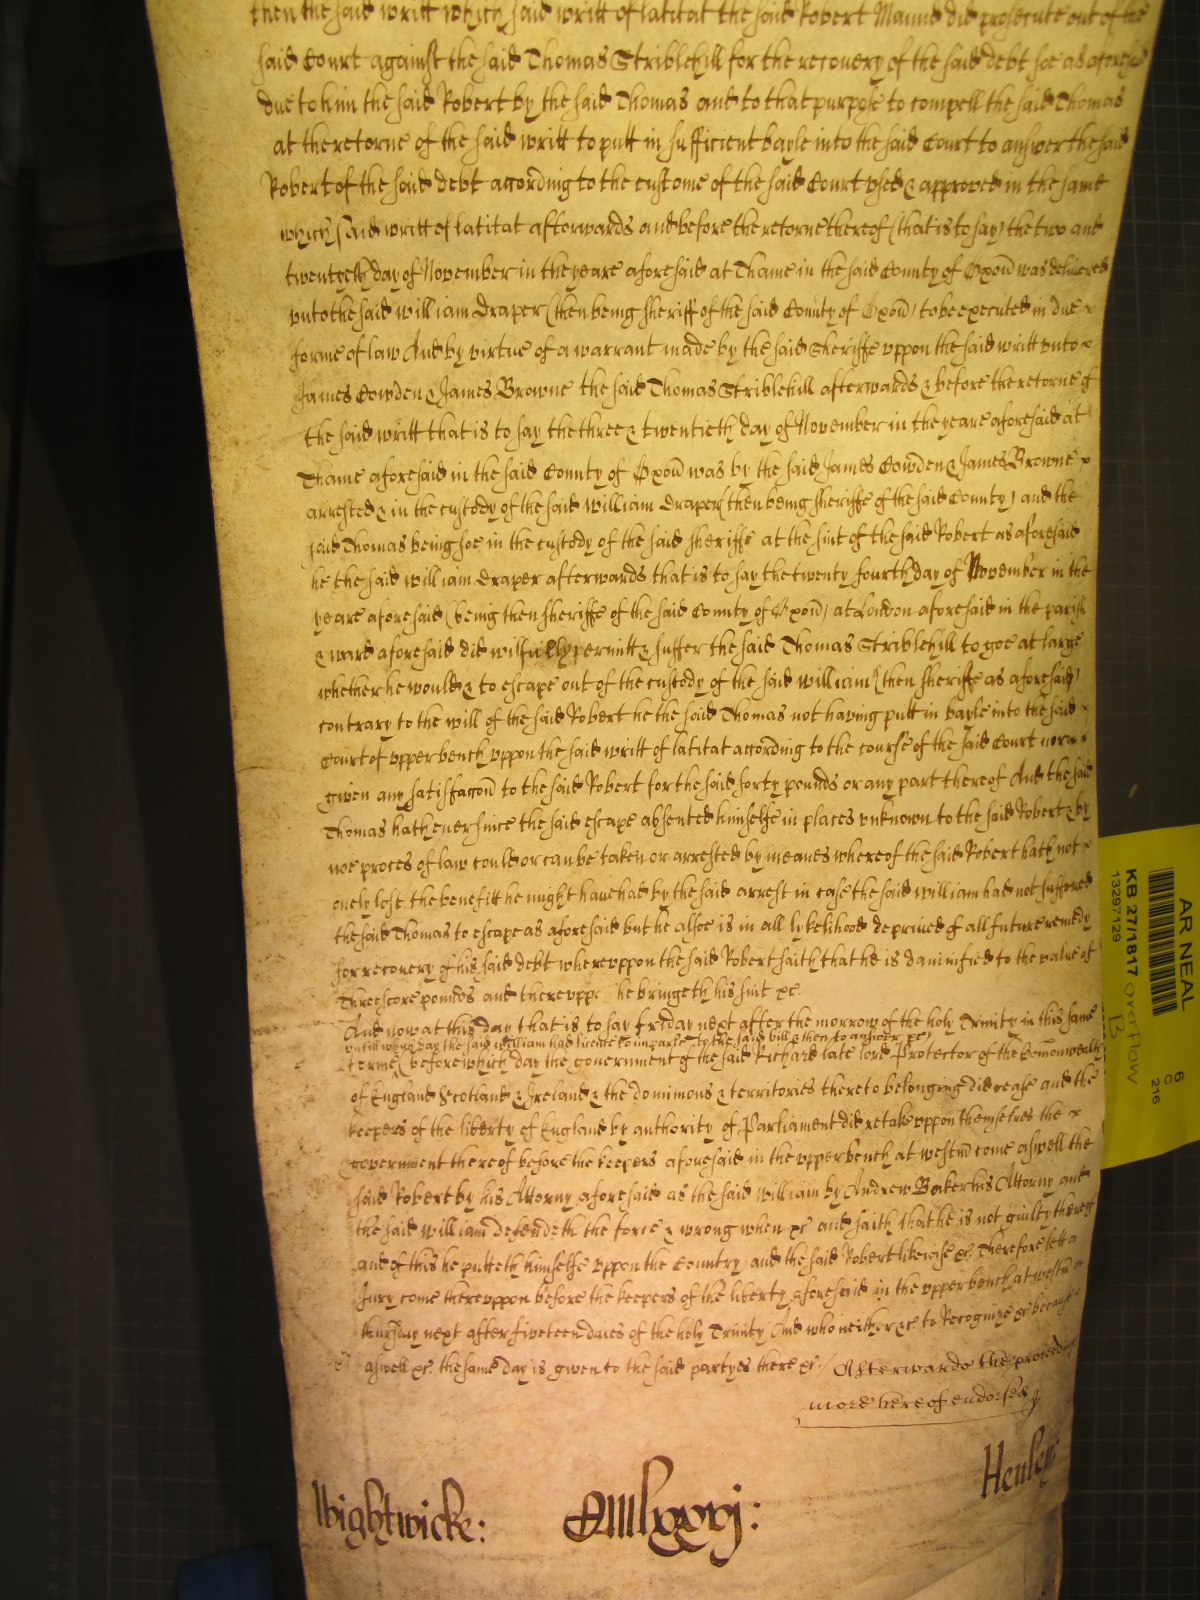 then the said writt which said writt of latitat the said Robert Maund did prosecute out of the
said Court against the said Thomas Striblehill for the recovery of the said debt soe as aforesaid
due to him the said Robert by the said Thomas and to that purpose to compell the said Thomas
at the retorne of the said writt to putt in sufficient bayle into the said Court to answer the said
Robert of the said debt according to the custome of the said Court vsed & approved in the same
which said writt of latitat afterwards and before the retorne thereof (that is to say) the two and
twentyeth day of November in the yeare aforesaid at Thame in the said County of Oxon was delivered
vnto the said William Draper (then being sheriff of the said County of Oxon) to be executed in due
forme of law And by virtue of a warrant made by the said Sheriffe vppon the said writt vnto
James Cowden & James Browne the said Thomas Striblehill afterwards & before the retorne of
the said writt that is to say the three & twentieth day of November in the yeare aforesaid at
Thame aforesaid in the said County of Oxon was by the said James Cowden & James Browne
arrested & in the custody of the said William Draper (then being sheriffe of the said County) and the
said Thomas being soe in the custody of the said sheriffe at the suit of the said Robert as aforesaid
he the said William Draper afterwards that is to say the twenty fourth day of November in the
yeare aforesaid (being then sheriffe of the said County of Oxon) at London aforesaid in the parish
& ward aforesaid did willfully permitt & suffer the said Thomas Striblehill to goe at large
whether he would & to escape out of the custody of the said William (then sheriffe as aforesaid)
contrary to the will of the said Robert he the said Thomas not having putt in bayle into the said
Court of vpper bench vppon the said writt of latitat according to the course of the said Court nor
given any satisfaccon to the said Robert for the said forty pounds or any part thereof And the said
Thomas hath ever since the said escape absented himselfe in places vnknown to the said Robert & by
noe proces of law could or can be taken or arrested by meanes whereof the said Robert hath not
onely lost the benefitt he might haue had by the said arrest in case the said William had not suffered
the said Thomas to escape as aforesaid but he alsoe is in all lykelihood deprived of all future remedy
for recovery of his said debt wherevppon the said Robert saith that he is damnified to the value of
Threescore pounds and therevppon he bringeth his suit &c.
And now at this day that is to say fryday next after the morrow of the holy Trinity in this same
vntill which day the said William had licence to imparle to the said bill & then to answer &c)
terme (before which day the government of the said Richard late lord Protector of the Comonwealth
of England Scotland & Ireland & the dominions & territories thereto belonging did cease and the
keepers of the liberty of England by authority of Parliament did retake vppon themselves the
government thereof before the keepers aforesaid in the vpper bench at westm come aswell the
said Robert by his Attorny aforesaid as the said William by Andrew Baker his Attorny and
the said William defendeth the force & wrong when &c and saith that he is not guilty thereof
and of this he putteth himselfe vppon the Country and the said Robert likewise &c. Therefore lett a
Jury come therevppon before the keepers of the liberty aforesaid in the vpper bench at westm on
thursday next after fiveteen daies of the holy Trinity And who neither &c to Recognize &c because
aswell &c. the same day is given to the said partyes there &c / Afterwards the proceedings
more hereof endorsed
Wightwicke: Henley
KB 27/1817 Overflow
B
13297129
AR NEAL
6
C
216